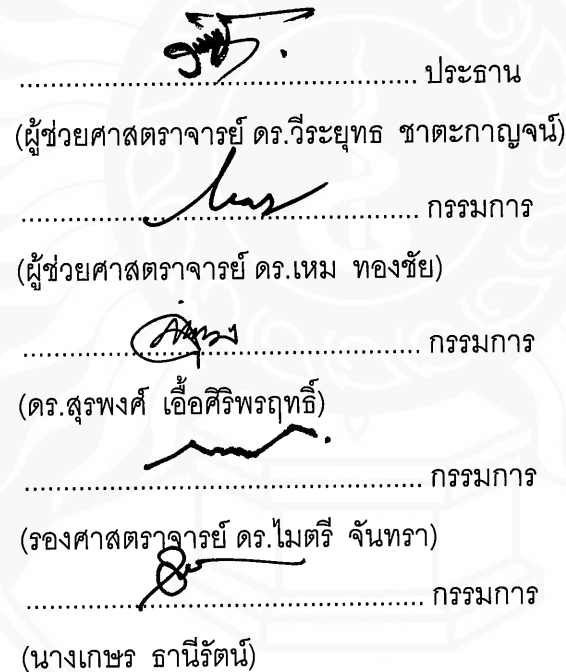 ........................................ ประธาน
(ผู้ช่วยศาสตราจารย์ ดร.วีระยุทธ ชาตะกาญจน์)
........................................ กรรมการ
(ผู้ช่วยศาสตราจารย์ ดร.เหม ทองชัย)
........................................ กรรมการ
(ดร.สุรพงศ์ เอื้อศิริพรฤทธิ์)
........................................ กรรมการ
(รองศาสตราจารย์ ดร.ไมตรี จันทรา)
........................................ กรรมการ
(นางเกษร ธานีรัตน์)